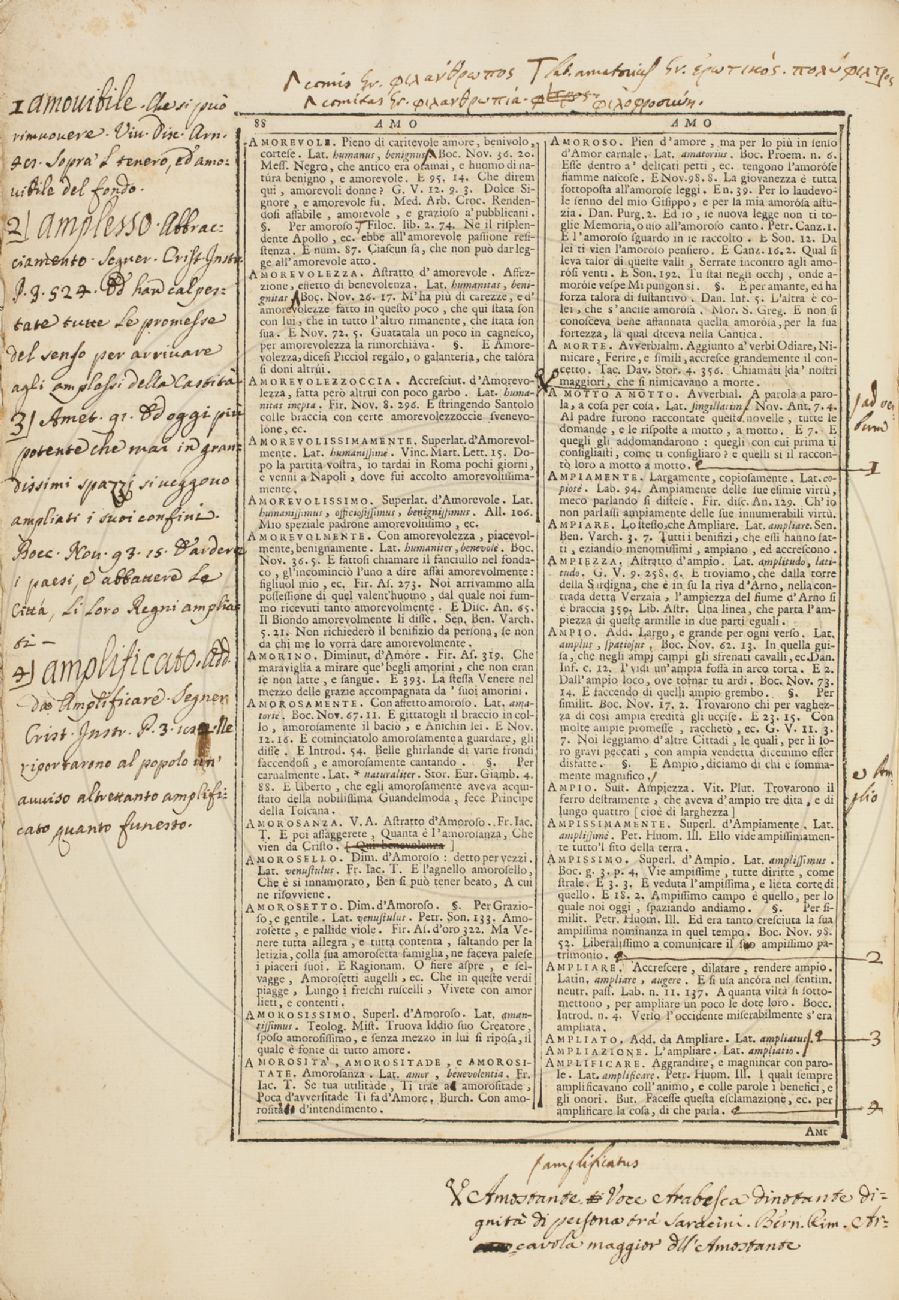 Λ comis Gr. φιλάνθρωπος T lat. amatorius Gr. ἐρωτικός. πολύφιλτρος
Λ comitas Gr. φιλανθρωπία. φιλοφροσύνη.
1 amovibile. Che si può
rimuovere. Viv. Disc. Arn.
Sopra 'l tenero, ed amo-
vibile del fondo.
2) amplesso. Abbrac-
ciamento. Segner. Crist. Instr.
P. 3. 524. Ed han calpes-
tate tutte le promesse
del senso per arrivare
agli amplessi della Castità
3) Amet. 91. Ed oggi più
potente che mai in gran-
dissimi spazzi si veggono
ampliati i suoi confini.
Bocc. Nov. 93. 15. D'ardere
i paesi, e abbattere le
Città, li loro Regni amplia-
ti
4) amplificato. Add.
da Amplificare. Segner.
Crist. Instr. P. 3.
riportarono al popolo un'
avviso altrettanto amplifi-
cato quanto funesto.
88 AMO
AMOREVOLE. Pieno di caritevole amore, benivolo,
cortese. Lat. humanus, benignus. Boc. Nov. 36. 20.
Mess. Negro, che antico era oramai, e huomo di na-
túra benigno, e amorevole. E 95. 14. Che direm
qui, amorevoli donne? G. V. 12. 9. 3. Dolce Si-
gnore, e amorevole fu. Med. Arb. Croc. Renden-
dosi affabile, amorevole, e grazioso a' pubblicani.
§. Per amoroso. Filoc. lib. 2. 74. Nè il risplen-
dente Apollo, ec. ebbe all'amorevole pasione resi-
stenza. E num. 87. Ciascun sa, che non può dar leg-
ge all'amorevole atto.
AMOREVOLEZZA. Astratto d'amorevole. Affez-
zione, effetto di benevolenza. Lat. humanitas, beni-
gnitas Boc. Nov. 26. 17. M'ha più di carezze, e d'
amorevolezze fatto in questo poco, che qui stata son
con lui, che in tutto l'altro rimanente, che stata son
sua. E Nov. 72. 5. Guatatala un poco in cagnesco,
per amorevolezza la rimorchiava. §. E Amore-
volezza, dicesi Picciol regalo, o galanteria, che talóra
si doni altrúi.
AMOREVOLEZZOCCIA. Accresciut. d'Amorevo-
lezza, fatta però altrui con poco garbo. Lat. huma-
nitas inepta. Fir. Nov. 8. 296. E stringendo Santolo
colle braccia con certe amorevolezzoccie svenevo-
lone, ec.
AMOREVOLISSIMAMENTE. Superlat. d'Amorevol-
mente. Lat. humanissimè. Vinc. Mart. Lett. 15. Do-
po la partita vostra, io tardai in Roma pochi giorni,
e venni a Napoli, dove fui accolto amorevolissima-
mente.
AMOREVOLISSIMO. Superlat. d'Amorevole. Lat.
humanissimus, officiosissimus, benignissimus. All. 106.
Mio speziale padrone amorevolissimo, ec.
AMOREVOLMENTE. Con amorevolezza, piacevol-
mente, benignamente. Lat. humaniter, benevole. Boc.
Nov. 36. 5. E fattosi chiamare il fanciullo nel fonda-
co, gl'incominciò l'uno a dire assai amorevolmente:
figliuol mio, ec. Fir. As. 273. Noi arrivammo alla
possessione di quel valent'huomo, dal quale noi fum-
mo ricevuti tanto amorevolmente. E Disc. An. 65.
Il Biondo amorevolmente li disse. Sen. Ben. Varch.
5. 21. Non richiederò il benifizio da persona, se non
da chi me lo vorrà dare amorevolmente.
AMORINO. Diminut. d'Amóre. Fir. As. 319. Che
maraviglia a mirare que' begli amorini, che non eran
se non latte, e sangue. E 393. La stessa Venere nel
mezzo delle grazie accompagnata da' suoi amorini.
AMOROSAMENTE. Con affetto amoroso. Lat. ama-
torie. Boc. Nov. 67. 11. E gittatogli il braccio in col-
lo, amorosamente il bació, e Anichin lei. E Nov.
12. 16. E cominciatolo amorosamente a guardare, gli
disse. E Introd. 54. Belle ghirlande di varie frondi
faccendosi, e amorosamente cantando. §. Per
carnalmente. Lat. * naturaliter. Stor. Eur. Giamb. 4.
88. E Uberto, che egli amorosamente aveva acqui-
stato della nobilissima Guandelmoda, fece Principe
della Toscana.
AMOROSANZA. V. A. Astratto d'Amoroso. Fr. Iac.
T. E poi assaggerete, Quanta è l'amorosanza, Che
vien da Cristo. [Qui benevolenza]
AMOROSELLO. Dim. d'Amoroso: detto per vezzi.
Lat. venustulus. Fr. Iac. T. E l'agnello amorosello,
Che è si innamorato, Ben si può tener beato, A cui
ne risovviene.
AMOROSETTO. Dim. d'Amoroso. §. Per Grazio-
so, e gentile. Lat. venustulus. Petr. Son. 133. Amo-
rosette, e pallide viole. Fir. As. d'oro 322. Ma Ve-
nere tutta allegra, e tutta contenta, saltando per la
letizia, colla sua amorosetta famiglia, ne faceva palese
i piaceri suoi. E Ragionam. O fiere aspre, e sel-
vagge, Amorosetti augelli, ec. Che in queste verdi
piagge, Lungo i freschi ruscelli, Vivete con amor
lieti, e contenti.
AMOROSISSIMO. Superl. d'Amoroso. Lat. aman-
tissimus. Teolog. Mist. Truova Iddio suo Creatore,
sposo amorosissimo, e senza mezzo in lui si riposa, il
quale è fonte di tutto amore.
AMOROSITA', AMOROSITADE, e AMOROSI-
TATE. Amorosanza. Lat. amor, benevolentia. Fr.
Iac. T. Se tua utilitade, Ti trae ad amorositade,
Poca d'avversitade Ti fa d'Amore. Burch. Con amo-
rosità d'intendimento.
AMO
AMOROSO. Pien d'amore, ma per lo più in senso
d'Amor carnale. Lat. amatorius. Boc. Proem. n. 6.
Esse dentro a' delicati petti, ec. tengono l'amoróse
fiamme nascose. E Nov. 98. 8. La giovanezza è tutta
sottoposta all'amorose leggi. En. 39. Per lo laudevo-
le senno del mio Gisippo, e per la mia amoròsa astu-
zia. Dan. Purg. 2. Ed io, se nuova legge non ti to-
glie Memoria, o uso all'amoroso canto. Petr. Canz. 1.
E l'amoroso sguardo in se raccolto. E Son. 12. Da
lei ti vien l'amoróso pensiero. E Canz. 16. 2. Qual si
leva talor di queste valli, Serrate incontro agli amo-
rósi venti. E Son. 192. Tu stai negli occhj, onde a-
moróse vespe Mi pungon si. §. E per amante, ed ha
forza talora di sustantivo. Dan. Inf. 5. L'altra è co-
lei, che s'ancise amorósa. Mor. S. Greg. E non si
conosceva bene affannata quella amorósa, per la sua
fortezza, la qual diceva nella Cantica.
A MORTE. Avverbialm. Aggiunto a' verbi Odiare, Ni-
micare, Ferire, e simili, accresce grandemente il con-
cetto. Tac. Dav. Stor. 4. 356. Chiamati da' nostri
maggiori, che si nimicavano a morte.
A MOTTO A MOTTO. Avverbial. A parola a paro-
la, a cosa per cosa. Lat. singillatim. Nov. Ant. 7. 4.
Al padre furono raccontate queste novelle, tutte le
domande, e le risposte a motto, a motto. E 7. E
quegli gli addomandarono: quegli con cui prima ti
configliasti, come ti consigliaro? e quelli si il raccon-
tò loro a motto a motto.
AMPIAMENTE. Largamente, copiosamente. Lat. co-
piosè. Lab. 94. Ampiamente delle sue esimie virtù,
meco parlando si distese. Fir. disc. An. 129. Ch'io
non parlassi ampiamente delle sue innumerabili virtù.
AMPIARE. Lo stesso, che Ampliare. Lat. ampliare. Sen.
Ben. Varch. 3. 7. Tutti i benifizi, che essi hanno fat-
ti, eziandio menomissimi, ampiano, ed accrescono.
AMPIEZZA. Astratto d'ampio. Lat. amplitudo, lati-
tudo. G. V. 9. 258. 6. E troviamo, che dalla torre
della Sardigna, che è in su la riva d'Arno, nella con-
trada detta Verzaia, l'ampiezza del fiume d'Arno si
è braccia 350. Lib. Astr. Una linea, che parta l'am-
piezza di queste armille in due parti eguali.
AMPIO. Add. Largo, e grande per ogni verso. Lat.
amplus, spatiosus. Boc. Nov. 62. 13. In quella gui-
sa, che negli ampj campi gli sfrenati cavalli, ec. Dan.
Inf. c. 12. I' vidi un' ampia fossa in arco torta. E 2.
Dall'ampio loco, ove tornar tu ardi. Boc. Nov. 73.
14. E faccendo di quelli ampio grembo. §. Per
similit. Boc. Nov. 17. 2. Trovarono chi per vaghez-
za di così ampia eredità gli uccise. E 23. 15. Con
molte ampie promesse, racchetò, ec. G. V. 11. 3.
7. Noi leggiamo d'altre Cittadi, le quali, per li lo-
ro gravi peccati, con ampia vendetta dicemmo esser
disfatte. §. E Ampio, diciamo di chi è somma-
mente magnifico.
AMPIO. Sust. Ampiezza. Vit. Plut. Trovarono il
ferro destramente, che aveva d'ampio tre dita, e di
lungo quattro [cioè di larghezza]
AMPISSIMAMENTE. Superl. d'Ampiamente. Lat.
amplissimè. Pet. Huom. Ill. Ello vide ampissimamen-
te tutto'l sito della terra.
AMPISSIMO. Superl. d'Ampio. Lat. amplissimus.
Boc. g. 3. p. 4. Vie ampissime, tutte diritte, come
strale. E 3. 3. E veduta l'ampissima, e lieta corte di
quello. E 18. 2. Ampissimo campo è quello, per lo
quale noi oggi, spaziando andiamo. §. Per si-
milit. Petr. Huom. Ill. Ed era tanto cresciuta la sua
ampissima nominanza in quel tempo. Boc. Nov. 98.
52. Liberalissimo a comunicare il suo ampissimo pa-
trimonio.
AMPLIARE. Accrescere, dilatare, rendere ampio.
Latin. ampliare, augere. E si usa ancòra nel sentim.
neutr. pass. Lab. n. 11. 137. A quanta viltà si sotto-
mettono, per ampliare un poco le dote loro. Bocc.
Introd. n. 4. Verso l'occidente miserabilmente s'era
ampliata.
AMPLIATO. Add. da Ampliare. Lat. ampliatus.
AMPLIAZIONE. L'ampliare. Lat. ampliatio.
AMPLIFICARE. Aggrandire, e magnificar con paro-
le. Lat. amplificare. Petr. Huom. Ill. I quali sempre
amplificavano coll'animo, e colle parole i benefici, e
gli onori. But. Facesse questa esclamazione, ec. per
amplificare la cosa, di che parla.
AMP
ad ver
bum
1
e Am
plio
2
3
4
amplificatus
Amostante. Voce Arabesca dinotante di-
gnità di persona trà Saracini. Bern. Rim.
cavola maggior dell'Amostante